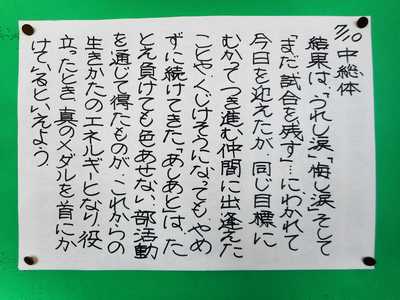 7/10 中総体
結果は、「うれし涙」「悔し涙」そして
「まだ試合を残す」…にわかれて
今日を迎えたが、同じ目標に
むかってつき進む仲間に出逢えた
ことや、くじけそうになっても、やめ
ずに続けてきた「あしあと」は、た
とえ負けても色あせない、部活動
を通じて得たものが、これからの
生きかたのエネルギーとなり役
立ったとき、真のメダルを首にか
けているといえよう。